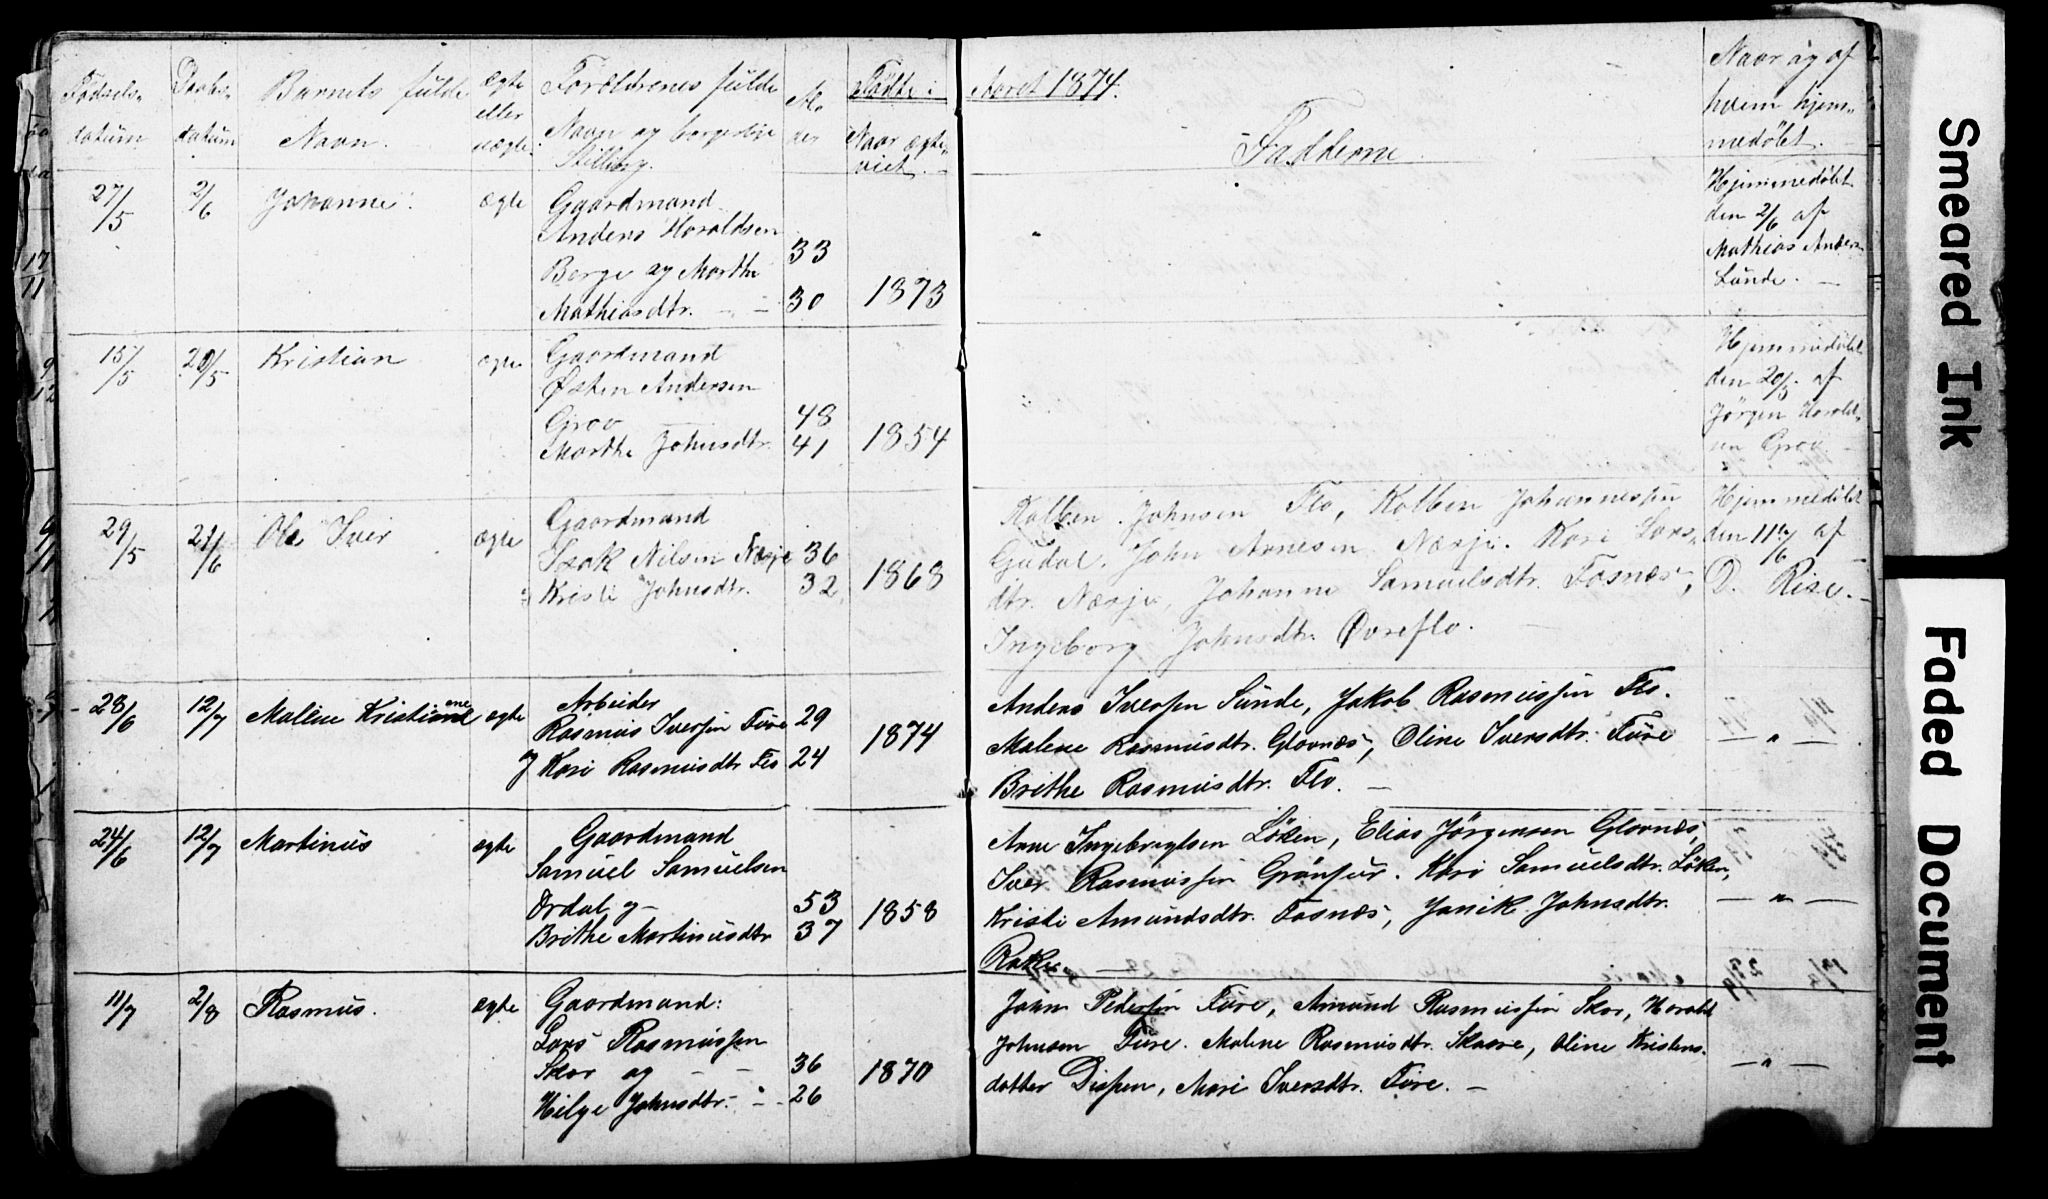 Fødsels-
datum
Daabs-
datum
Barnets fulde
Navn.
ægte
eller
uægte
Forældrenes fulde
Navn og borgerlige
Stilling.
Al-
der
Fødte i
Naar ægte-
viet.
Aaret 1874.
Fadderne
Naar og af
hvem hjem-
medøbt.
27/5
2/6
Johanne.
ægte
Gaardmand
Anders Haraldsen
Berge og Marthe
Mathiasdtr.
33
30
1873
Hjemmedøbt
den 2/6 af
Mathias Anders
Lunde.
15/5
20/5
Kristian
ægte
Gaardmand
Østen Andersen
Grov
Marthe Johnsdtr.
48
41
1854
Hjemmedøbt
den 20/5 af
Jørgen Harald-
sen Grov.
29/5
21/6
Ole Iver
ægte
Gaardmand
Isak Nilsen Næsje
Kristi Johnsdtr.
36
32
1868
Kolben Johnsen Flo, Kolben Johannessen
Gudal. John Arnesen Næsje. Kari Lars-
dtr. Næsje, Johanne Samuelsdtr. Fosnæs,
Ingeborg Johnsdtr. Øvreflo.
Hjemmedøbt
den 11te/6 af
D. Rise.
28/6
12/7
Maline Kristiane
ægte
Arbeider
Rasmus Iversen Fure
Kari Rasmusdtr Flo
29
24
1874
Anders Iversen Sunde, Jakob Rasmussen Flo.
Malene Rasmusdtr. Glavnæs, Oline Iversdtr. Fure
Brithe Rasmusdtr. Flo.
— " —
24/6
12/7
Martinus
ægte
Gaardmand
Samuel Samuelsen
Ordal og
Brithe Martinusdtr
53
37
1858
Anne Ingebrigtsen Løken, Elias Jørgensen Glavnæs,
Iver Rasmussen Grønfur. Kari Samuelsdtr. Løken,
Kristi Amundsdtr. Fosnæs, Janik Johnsdtr.
— " —
11/7
2/8
Rasmus.
ægte
Gaardmand:
Lars Rasmussen
Skor og
Hilge Johnsdtr.
36
26
1870
John Pedersen Fure, Amund Rasmussen Skor, Harald
Johnsen Fure. Malene Rasmusdtr. Skaare, Oline Kristens-
datter Dispen, Mari Iversdtr. Fure.
— " —
Smeared Ink
Faded Document